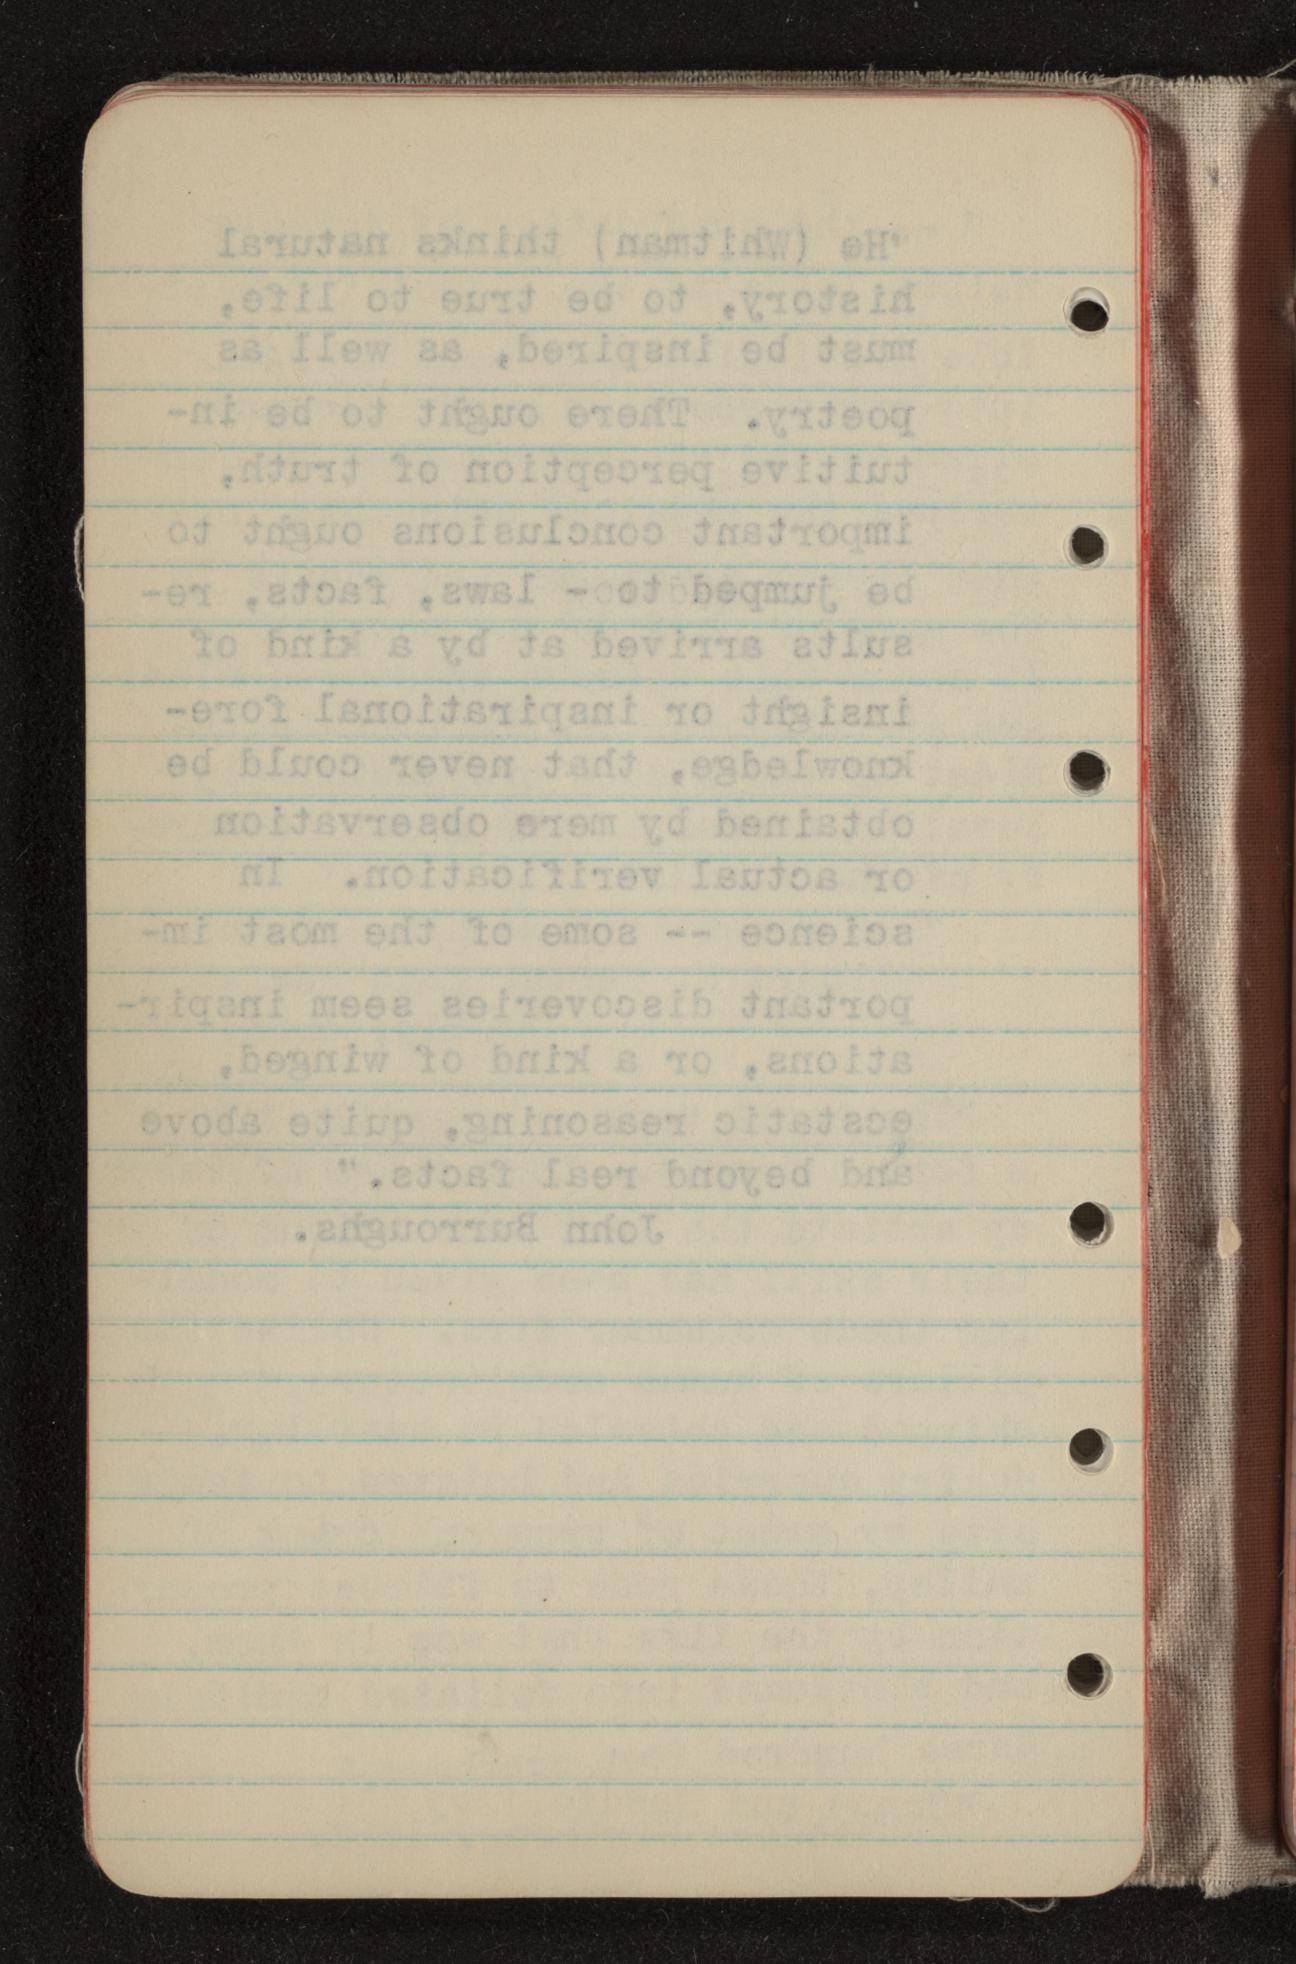 "He (Whitman) thinks natural
history, to be true to life,
must be inspired, as well as
poetry. There ought to be in-
tuitive perception of truth,
important conclusions ought to
be jumped to - laws, facts, re-
sults arrived at by a kind of
insight or inspirational fore-
knowledge, that never could be
obtained by mere observation
or actual verification. In
science -- some of the most im-
portant discoveries seem inspir-
ations, or a kind of winged,
ecstatic reasoning, quite above
and beyond real facts."
John Burroughs.